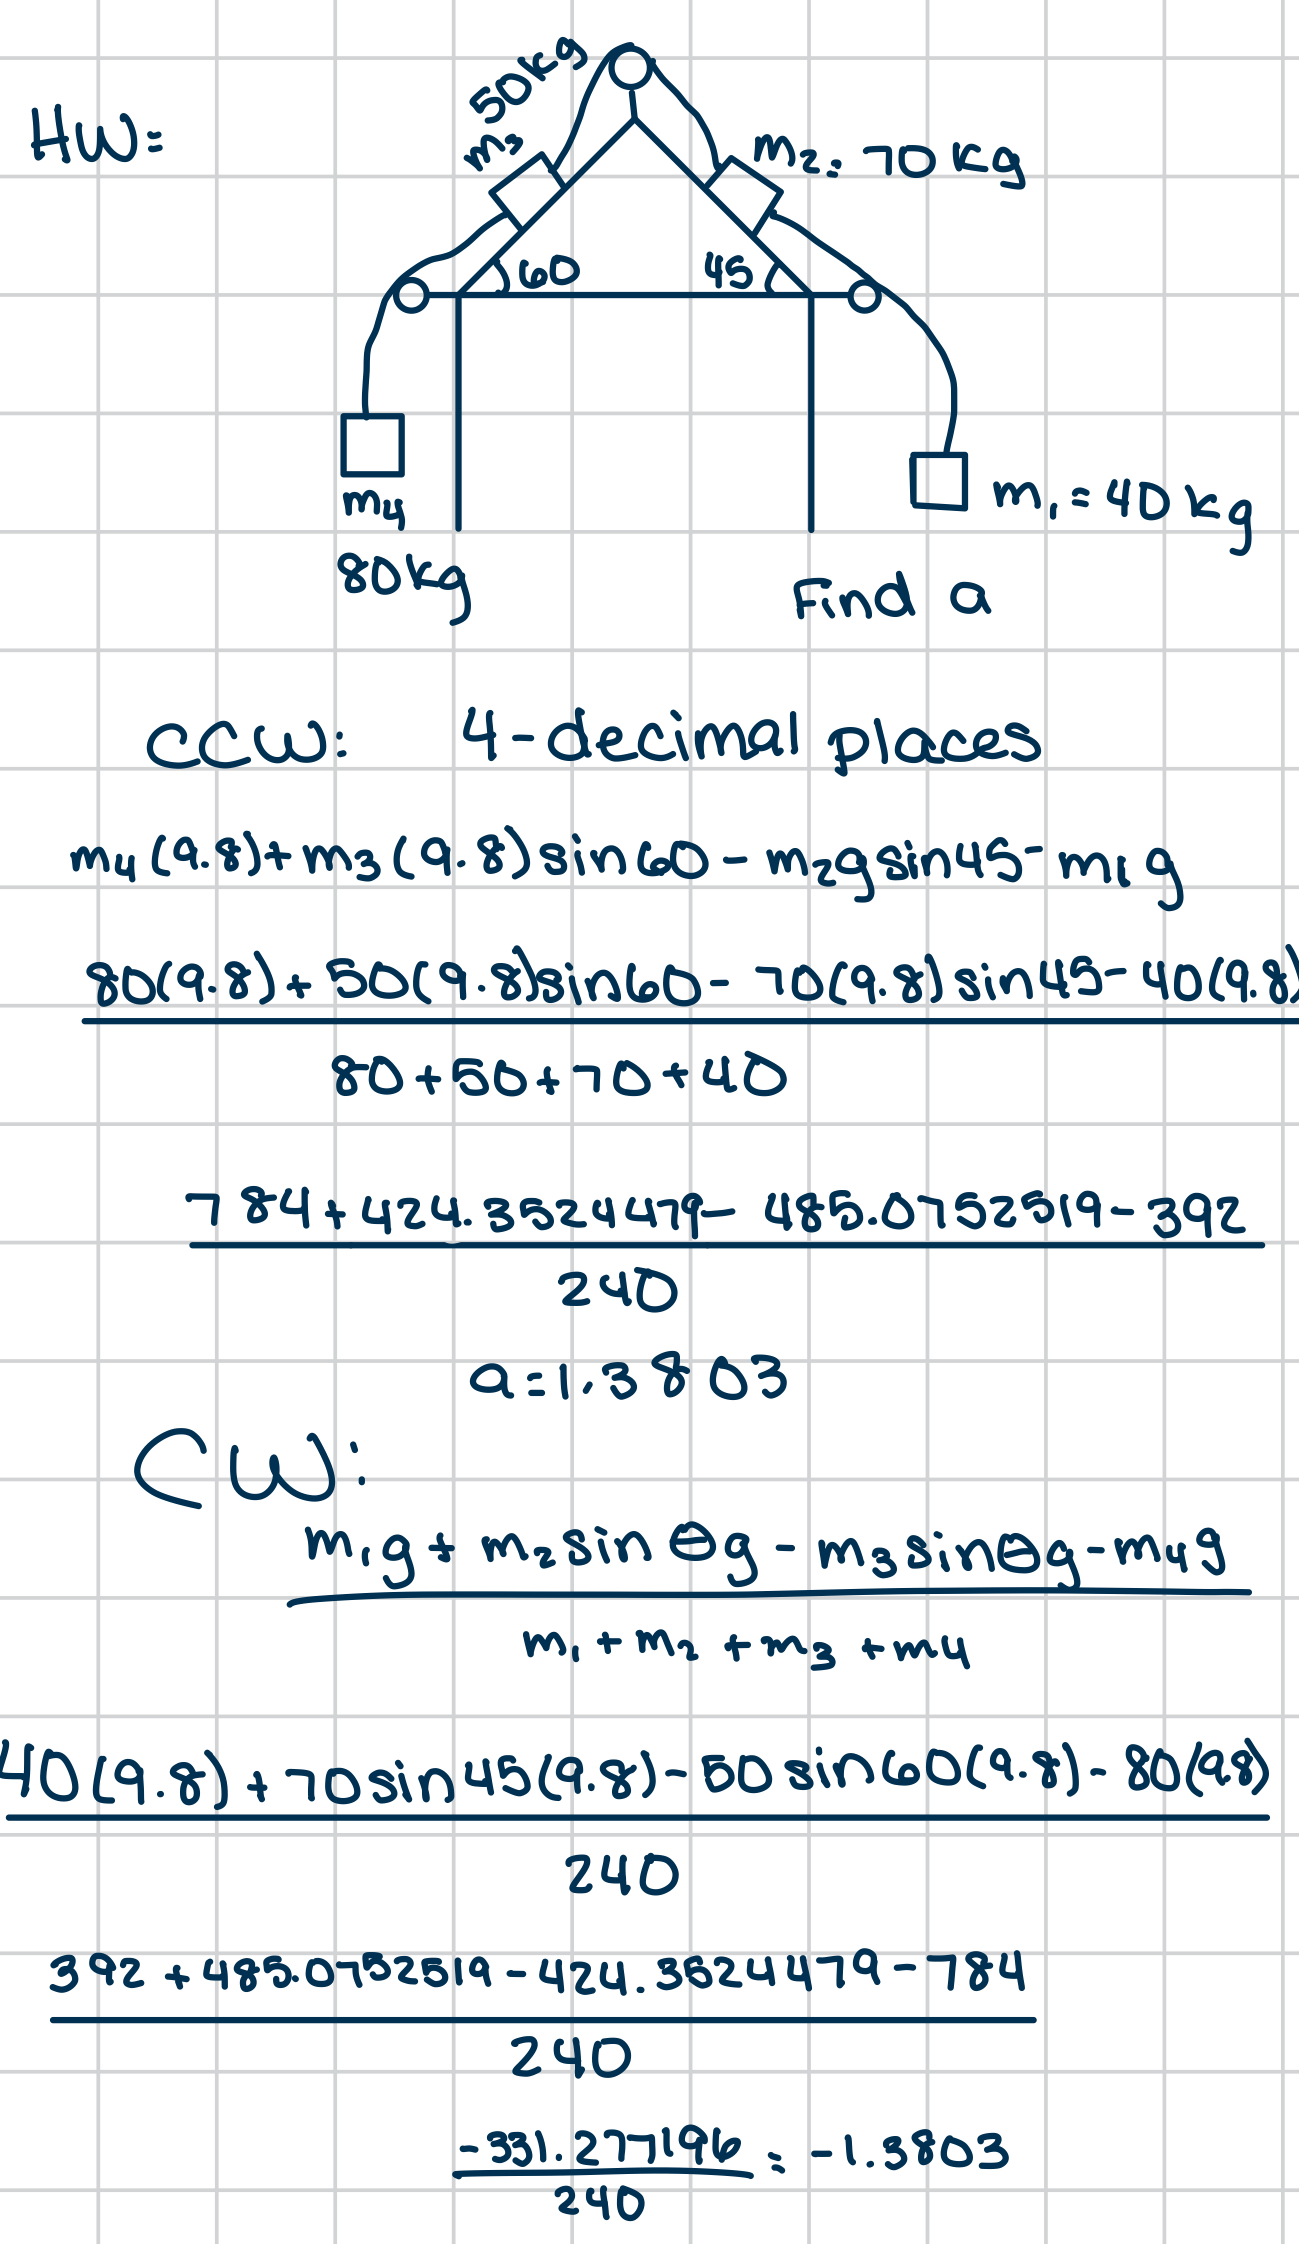 50kg
HW:
m3
m2: 70 kg
60
45
m4
m1 = 40 kg
80kg
Find a
CCW: 4-decimal places
m4(9.8)+m3(9.8)sin60-m2gsin45-m1g
80(9.8)+50(9.8)sin60-70(9.8)sin45-40(9.8)
80+50+70+40
784+424.3524479-485.0752519-392
240
a=1.3803
CW:
m1g+m2sinθg-m3sinθg-m4g
m1+m2+m3+m4
40(9.8)+70sin45(9.8)-50sin60(9.8)-80(9.8)
240
392+485.0752519-424.3524479-784
240
-331.277196 = -1.3803
240